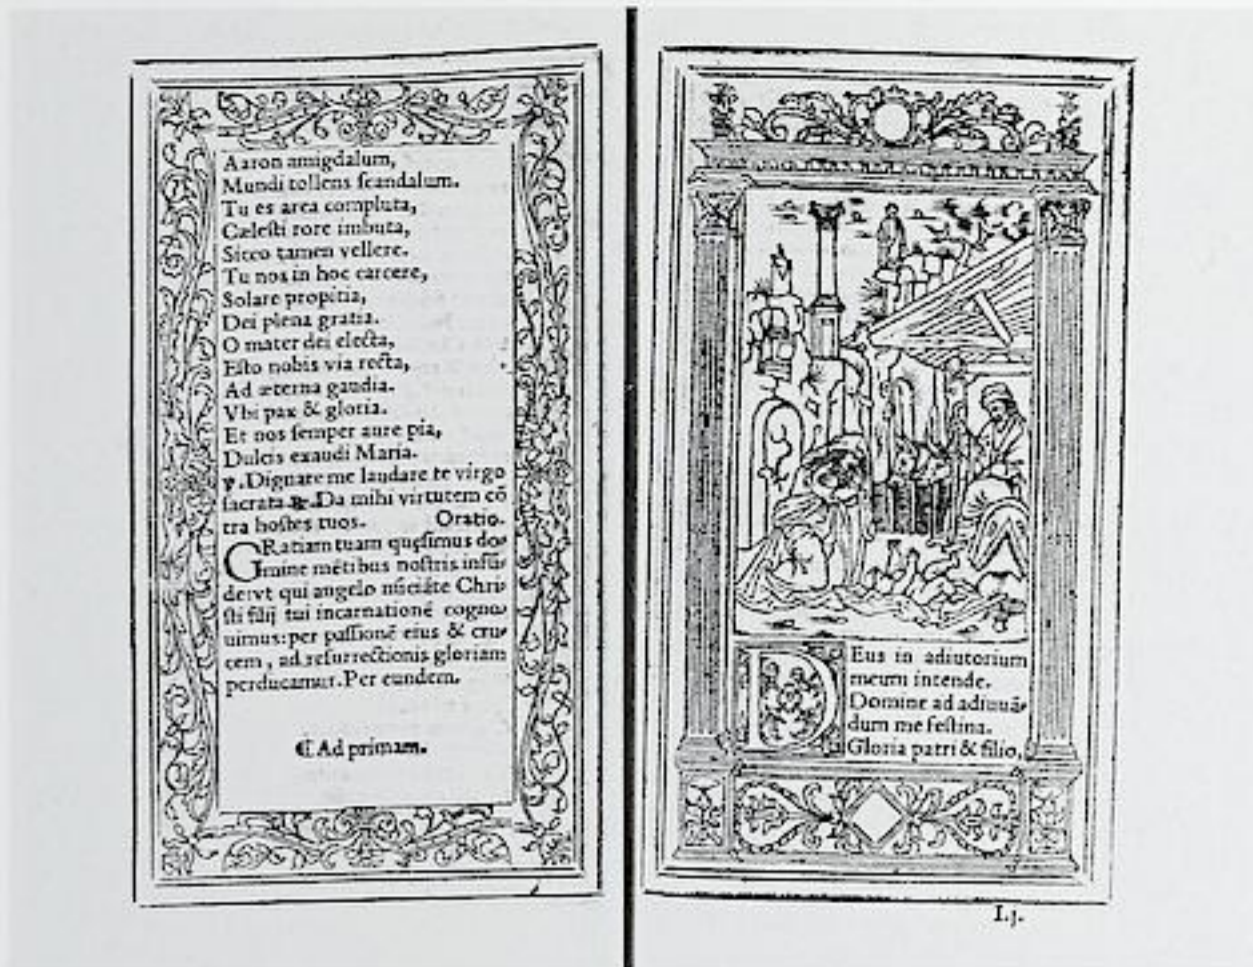 Aaron amigdalum,
Mundi tollens ſcandalum.
Tu es area compluta,
Cæleſti rore imbuta,
Sicco tamen vellere.
Tu nos in hoc carcere,
Solare propitia,
Dei plena gratia.
O mater dei electa,
Eſto nobis via recta,
Ad æterna gaudia.
Vbi pax & gloria.
Et nos ſemper aure pia,
Dulcis exaudi Maria.
℣. Dignare me laudare te virgo
ſacrata. ℟. Da mihi virtutem cō
tra hoſtes tuos. Oratio.
GRatiam tuam quęſimus do-
mine mētibus noſtris infū-
de: vt qui angelo nūciāte Chri-
ſti filij tui incarnationē cogno-
uimus: per paſſionē eius & cru-
cem, ad reſurrectionis gloriam
perducamur. Per eundem.
⸿ Ad primam.
DEus in adiutorium
meum intende.
Domine ad adiuuā-
dum me feſtina.
Gloria patri & filio,
I.j.